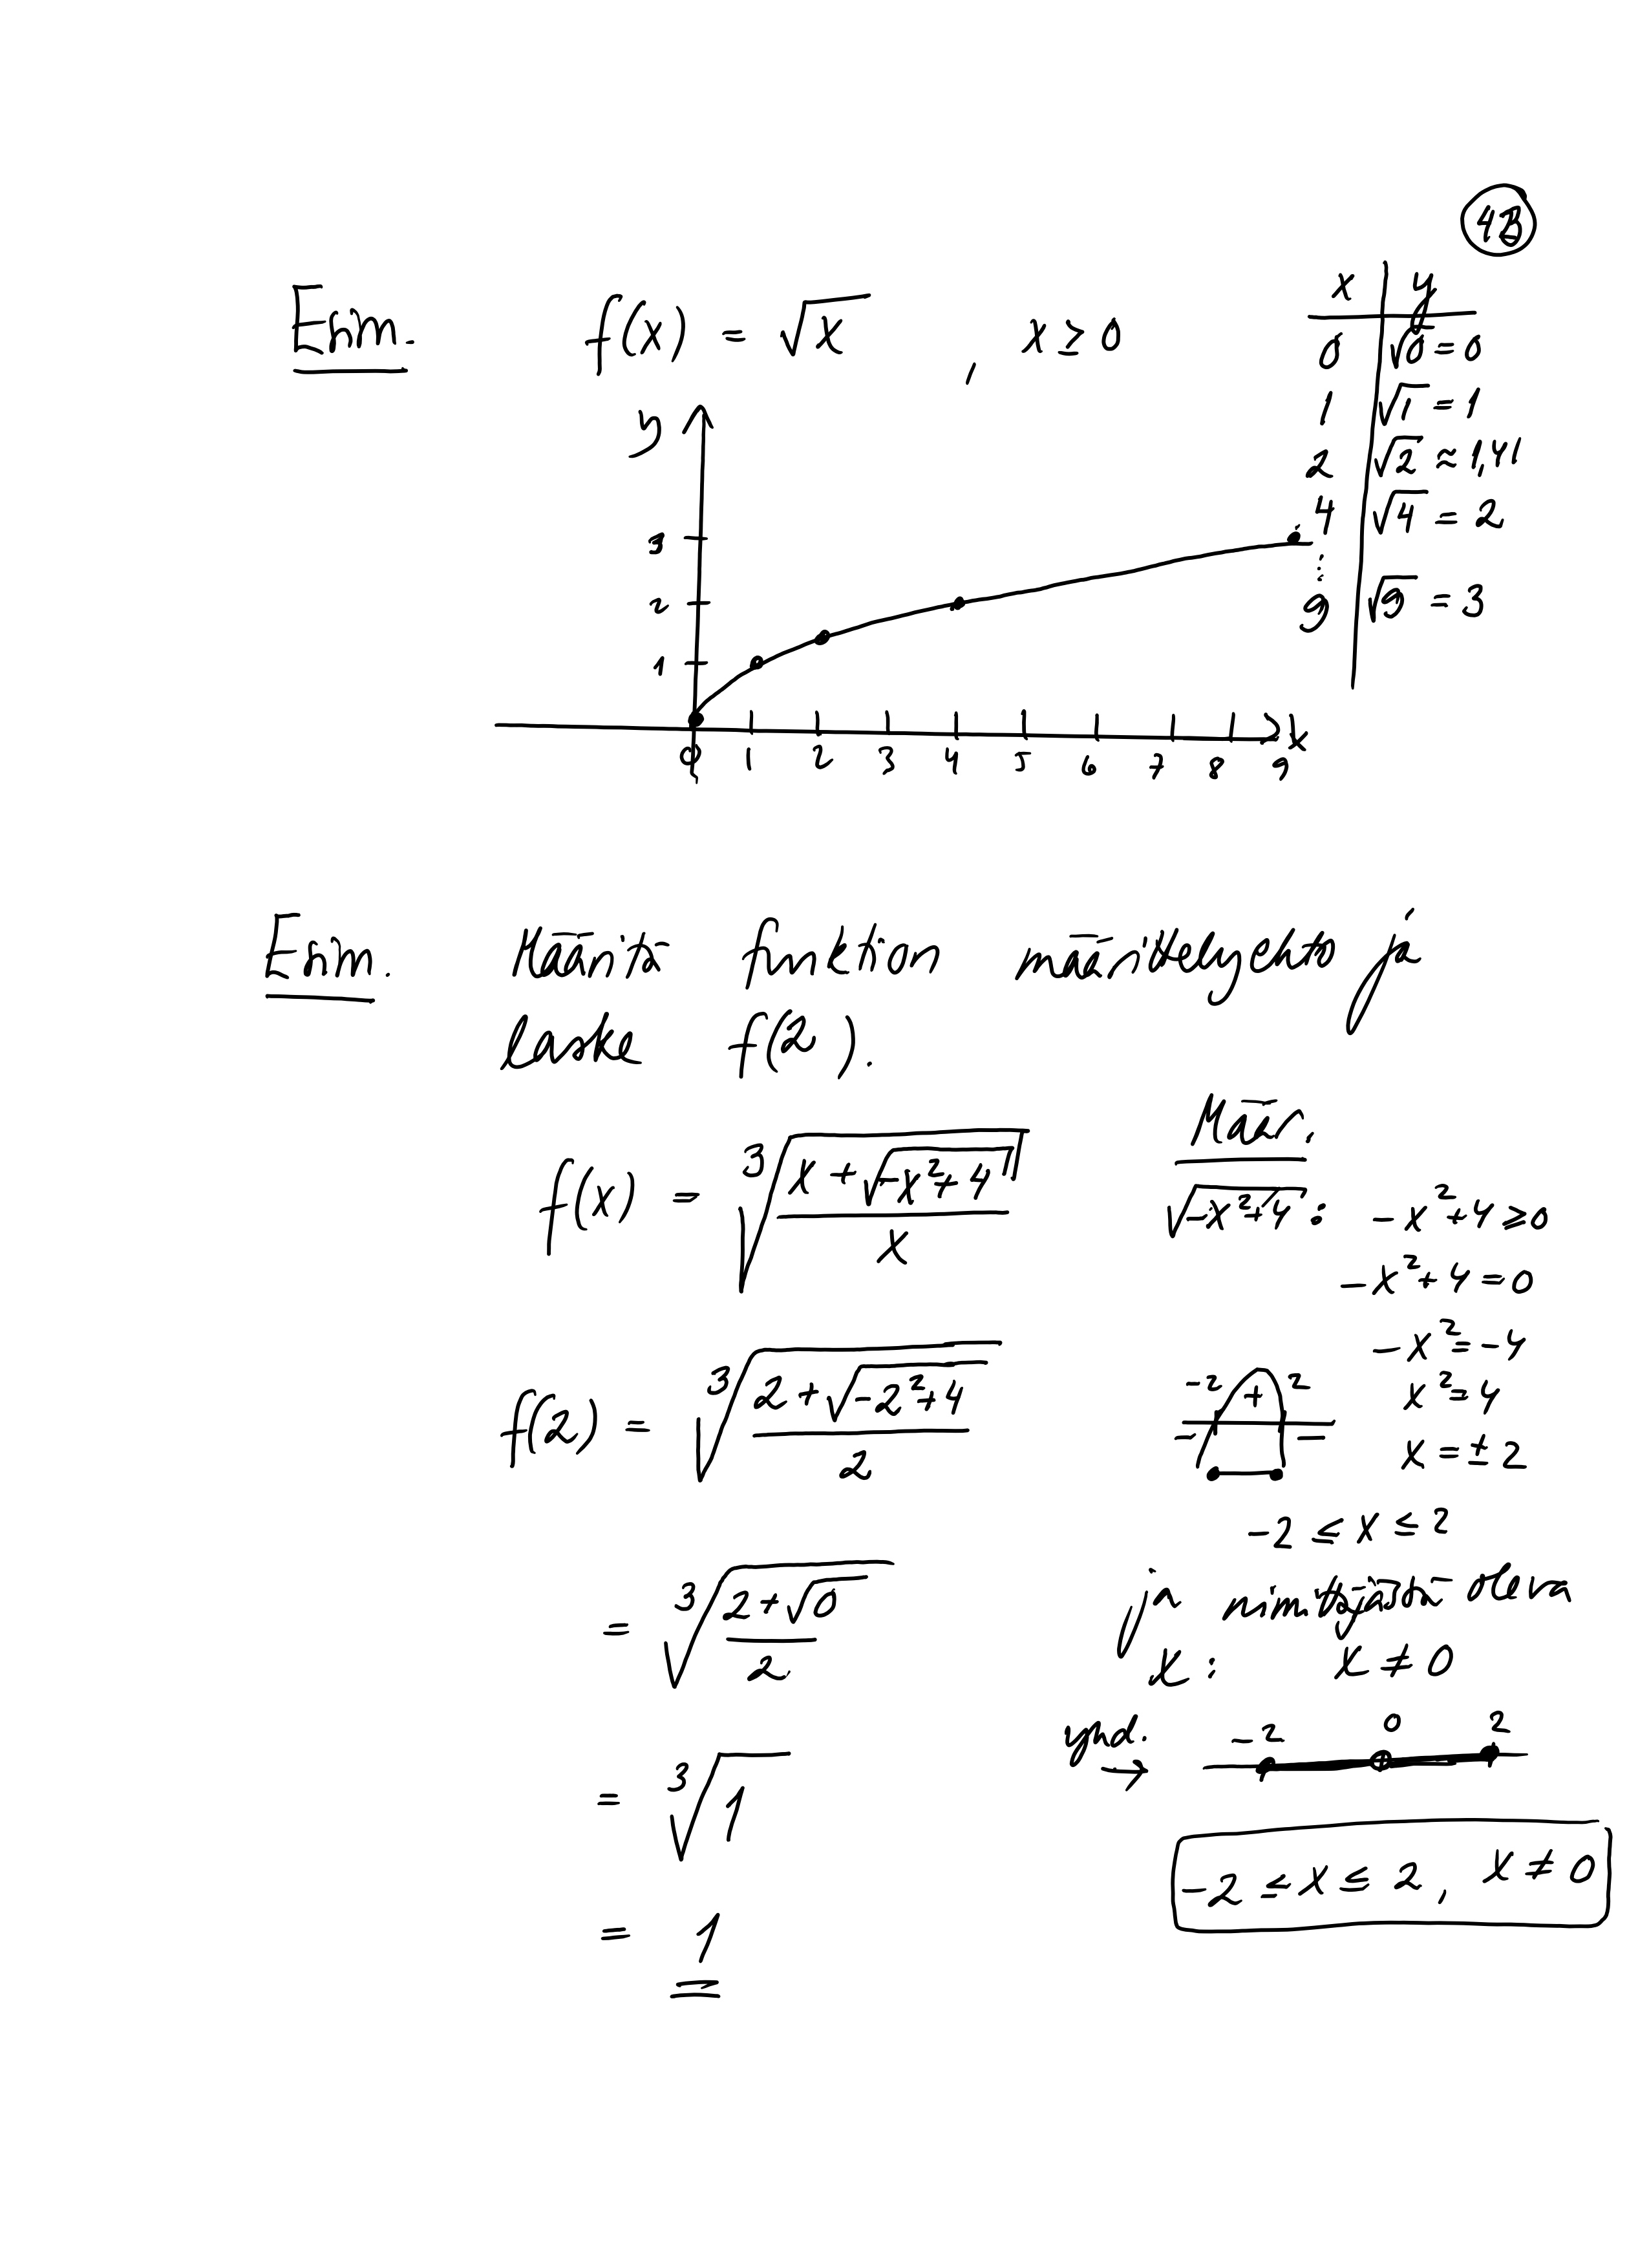 43
Esim. f(x) = √x , x ≥ 0
x | y
0 | √0 = 0
1 | √1 = 1
2 | √2 ≈ 1,41
4 | √4 = 2
⋮
9 | √9 = 3
y
3
2
1
0 1 2 3 4 5 6 7 8 9 x
Esim. Määritä funktion määrittelyehto ja
laske f(2).
f(x) = ∛((x + √(-x²+4))/x)
f(2) = ∛((2 + √(-2²+4))/2)
= ∛((2 + √0)/2)
= ∛1
= 1
Määr.
√(-x²+4) : -x²+4 ≥ 0
-x²+4 = 0
-x² = -4
x² = 4
x = ±2
-2 + 2
- -
-2 ≤ x ≤ 2
ja nimittäjässä oleva
x : x ≠ 0
yhd. → -2 0 2
-2 ≤ x ≤ 2, x ≠ 0